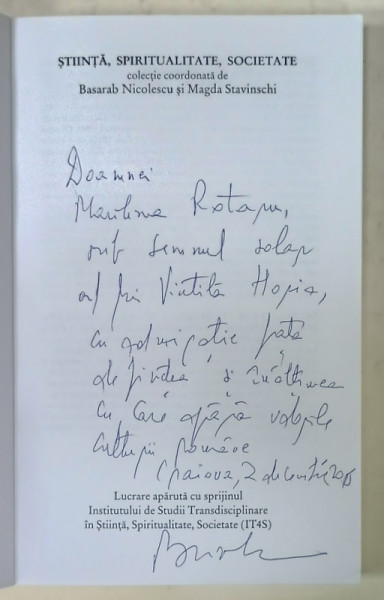 ȘTIINȚĂ, SPIRITUALITATE, SOCIETATE
colecție coordonată de
Basarab Nicolescu și Magda Stavinschi
Doamnei
Marilena Rotaru,
sub semnul solar
al lui Vintilă Horia,
cu admirație față
de știința și înălțimea
cu care apără valorile
culturii române
Craiova, 2 decembrie
Lucrare apărută cu sprijinul
Institutului de Studii Transdisciplinare
în Știință, Spiritualitate, Societate (IT4S)